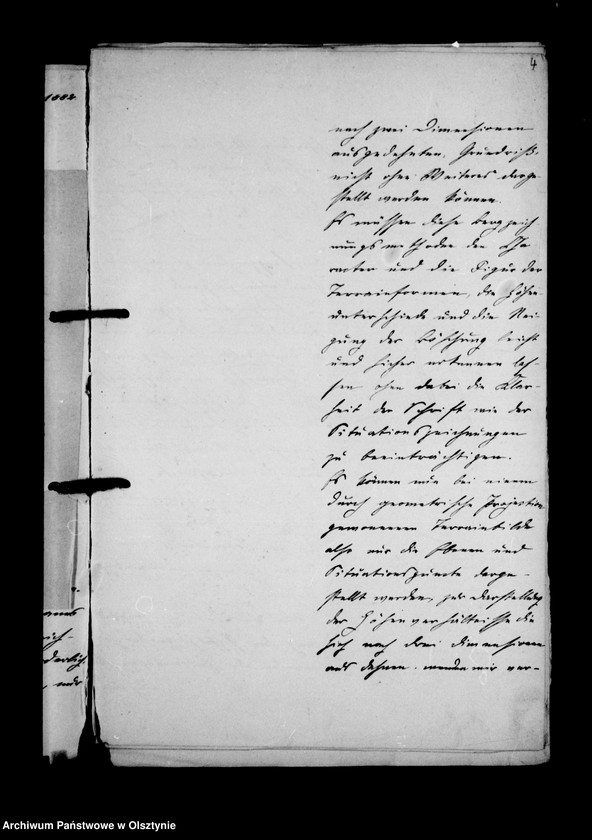 4
nach zwei Dimensionen
ausgedehnten, Grundriß
nicht ohne Weiteres darge-
stellt werden können.
Es müssen diese Bergzeich
nungsmethoden den Cha
racter und die Figur der
Terrainformen, die Höhen-
unterschiede und die Nei-
gung der Böschung leicht
und sicher erkennen las-
sen ohne dabei die Klar-
heit der Schrift wie der
Situationszeichnungen
zu beeinträchtigen.
Es können nun bei einem
durch geometrische Projection
gewonnenen Terrainbilde
also nur die Ebenen und
Situationspuncte darge-
stellt werden, zur Darstellung
der Höhenverhältnisse die
sich nach drei Dimensionen
aus dehnen. wenden wir ver-
1882
Archiwum Państwowe w Olsztynie